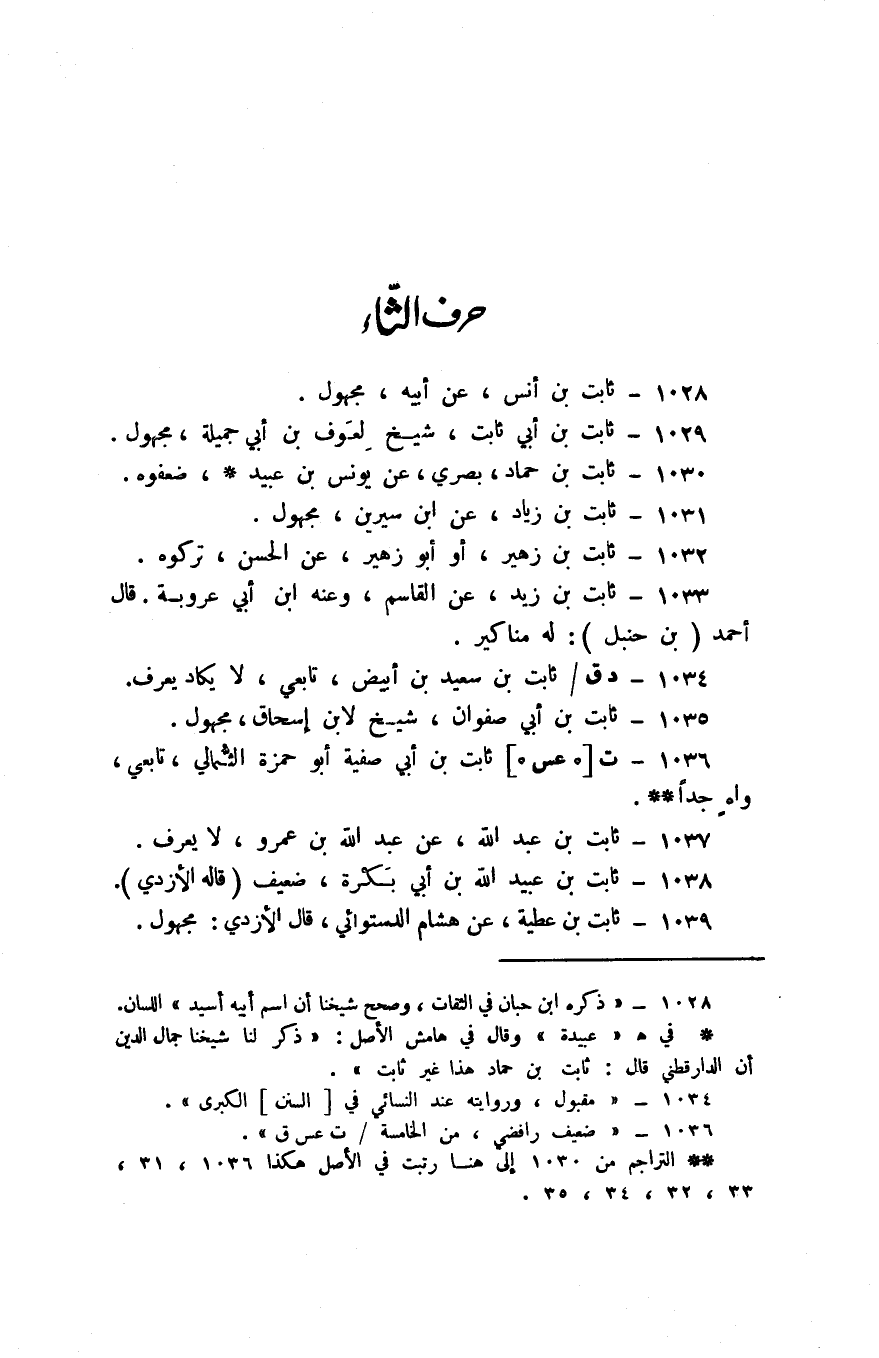 حرف الثّاء
١٠٢٨ – ثابت بن أنس ، عن أبيه ، مجهول .
١٠٢٩ – ثابت بن أبي ثابت ، شيـخ لِعَوف بن أبي جميلة ، مجهول .
١٠٣٠ – ثابت بن حماد ، بصري ، عن يونس بن عبيد * ، ضعفوه .
١٠٣١ – ثابت بن زياد ، عن ابن سيرين ، مجهول .
١٠٣٢ – ثابت بن زهير ، أو أبو زهير ، عن الحسن ، تركوه .
١٠٣٣ – ثابت بن زيد ، عن القاسم ، وعنه ابن أبي عروبـة . قال
أحمد ( بن حنبل ) : له مناكير .
١٠٣٤ – د ق / ثابت بن سعيد بن أبيض ، تابعي ، لا يكاد يعرف.
١٠٣٥ – ثابت بن أبي صفوان ، شيـخ لابن إسحاق ، مجهول .
١٠٣٦ – ت [ ٥ عس ٥ ] ثابت بن أبي صفية أبو حمزة الثُّمالي ، تابعي ،
واهٍ جداً ** .
١٠٣٧ – ثابت بن عبد الله ، عن عبد الله بن عمرو ، لا يعرف .
١٠٣٨ – ثابت بن عبيد الله بن أبي بَكْرة ، ضعيف ( قاله الأزدي ).
١٠٣٩ – ثابت بن عطية ، عن هشام الدستوائي ، قال الأزدي : مجهول .
١٠٢٨ – « ذكره ابن حبان في الثقات ، وصحح شيخنا أن اسم أبيه أسيد » اللسان.
* في ه « عبيدة » وقال في هامش الأصل : « ذكر لنا شيخنا جمال الدين
أن الدارقطني قال : ثابت بن حماد هذا غير ثابت » .
١٠٣٤ – « مقبول ، وروايته عند النسائي في [ السنن ] الكبرى » .
١٠٣٦ – « ضعيف رافضي ، من الخامسة / ت عس ق » .
** التراجم من ١٠٣٠ إلى هنـا رتبت في الأصل هكذا ١٠٣٦ ، ٣١ ،
٣٣ ، ٣٢ ، ٣٤ ، ٣٥ .